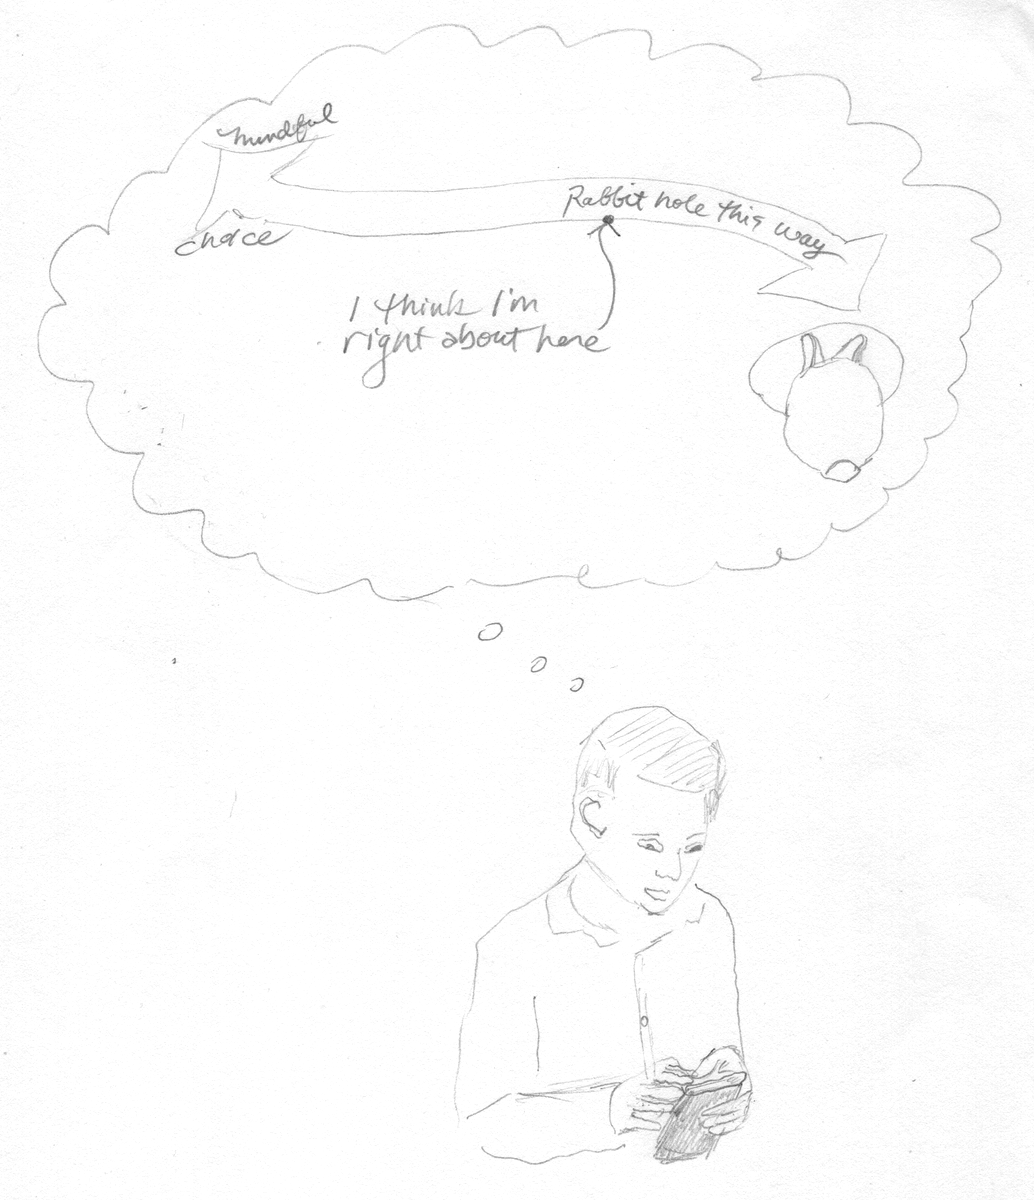 mindful
choice
Rabbit hole this way
I think I'm
right about here